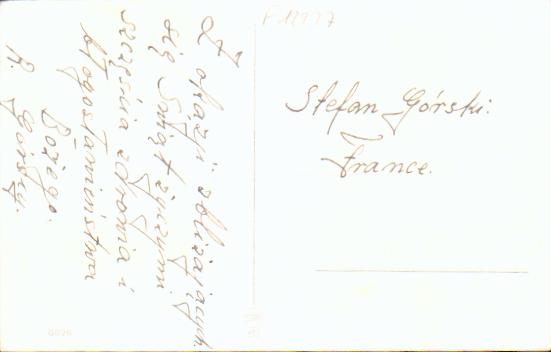 Z okazji zbliżających
się Świąt życzymy
szczęścia zdrowia i
błogosłanieństwa
Bożego.
R. Górscy.
F 12777
Stefan Górski.
France.